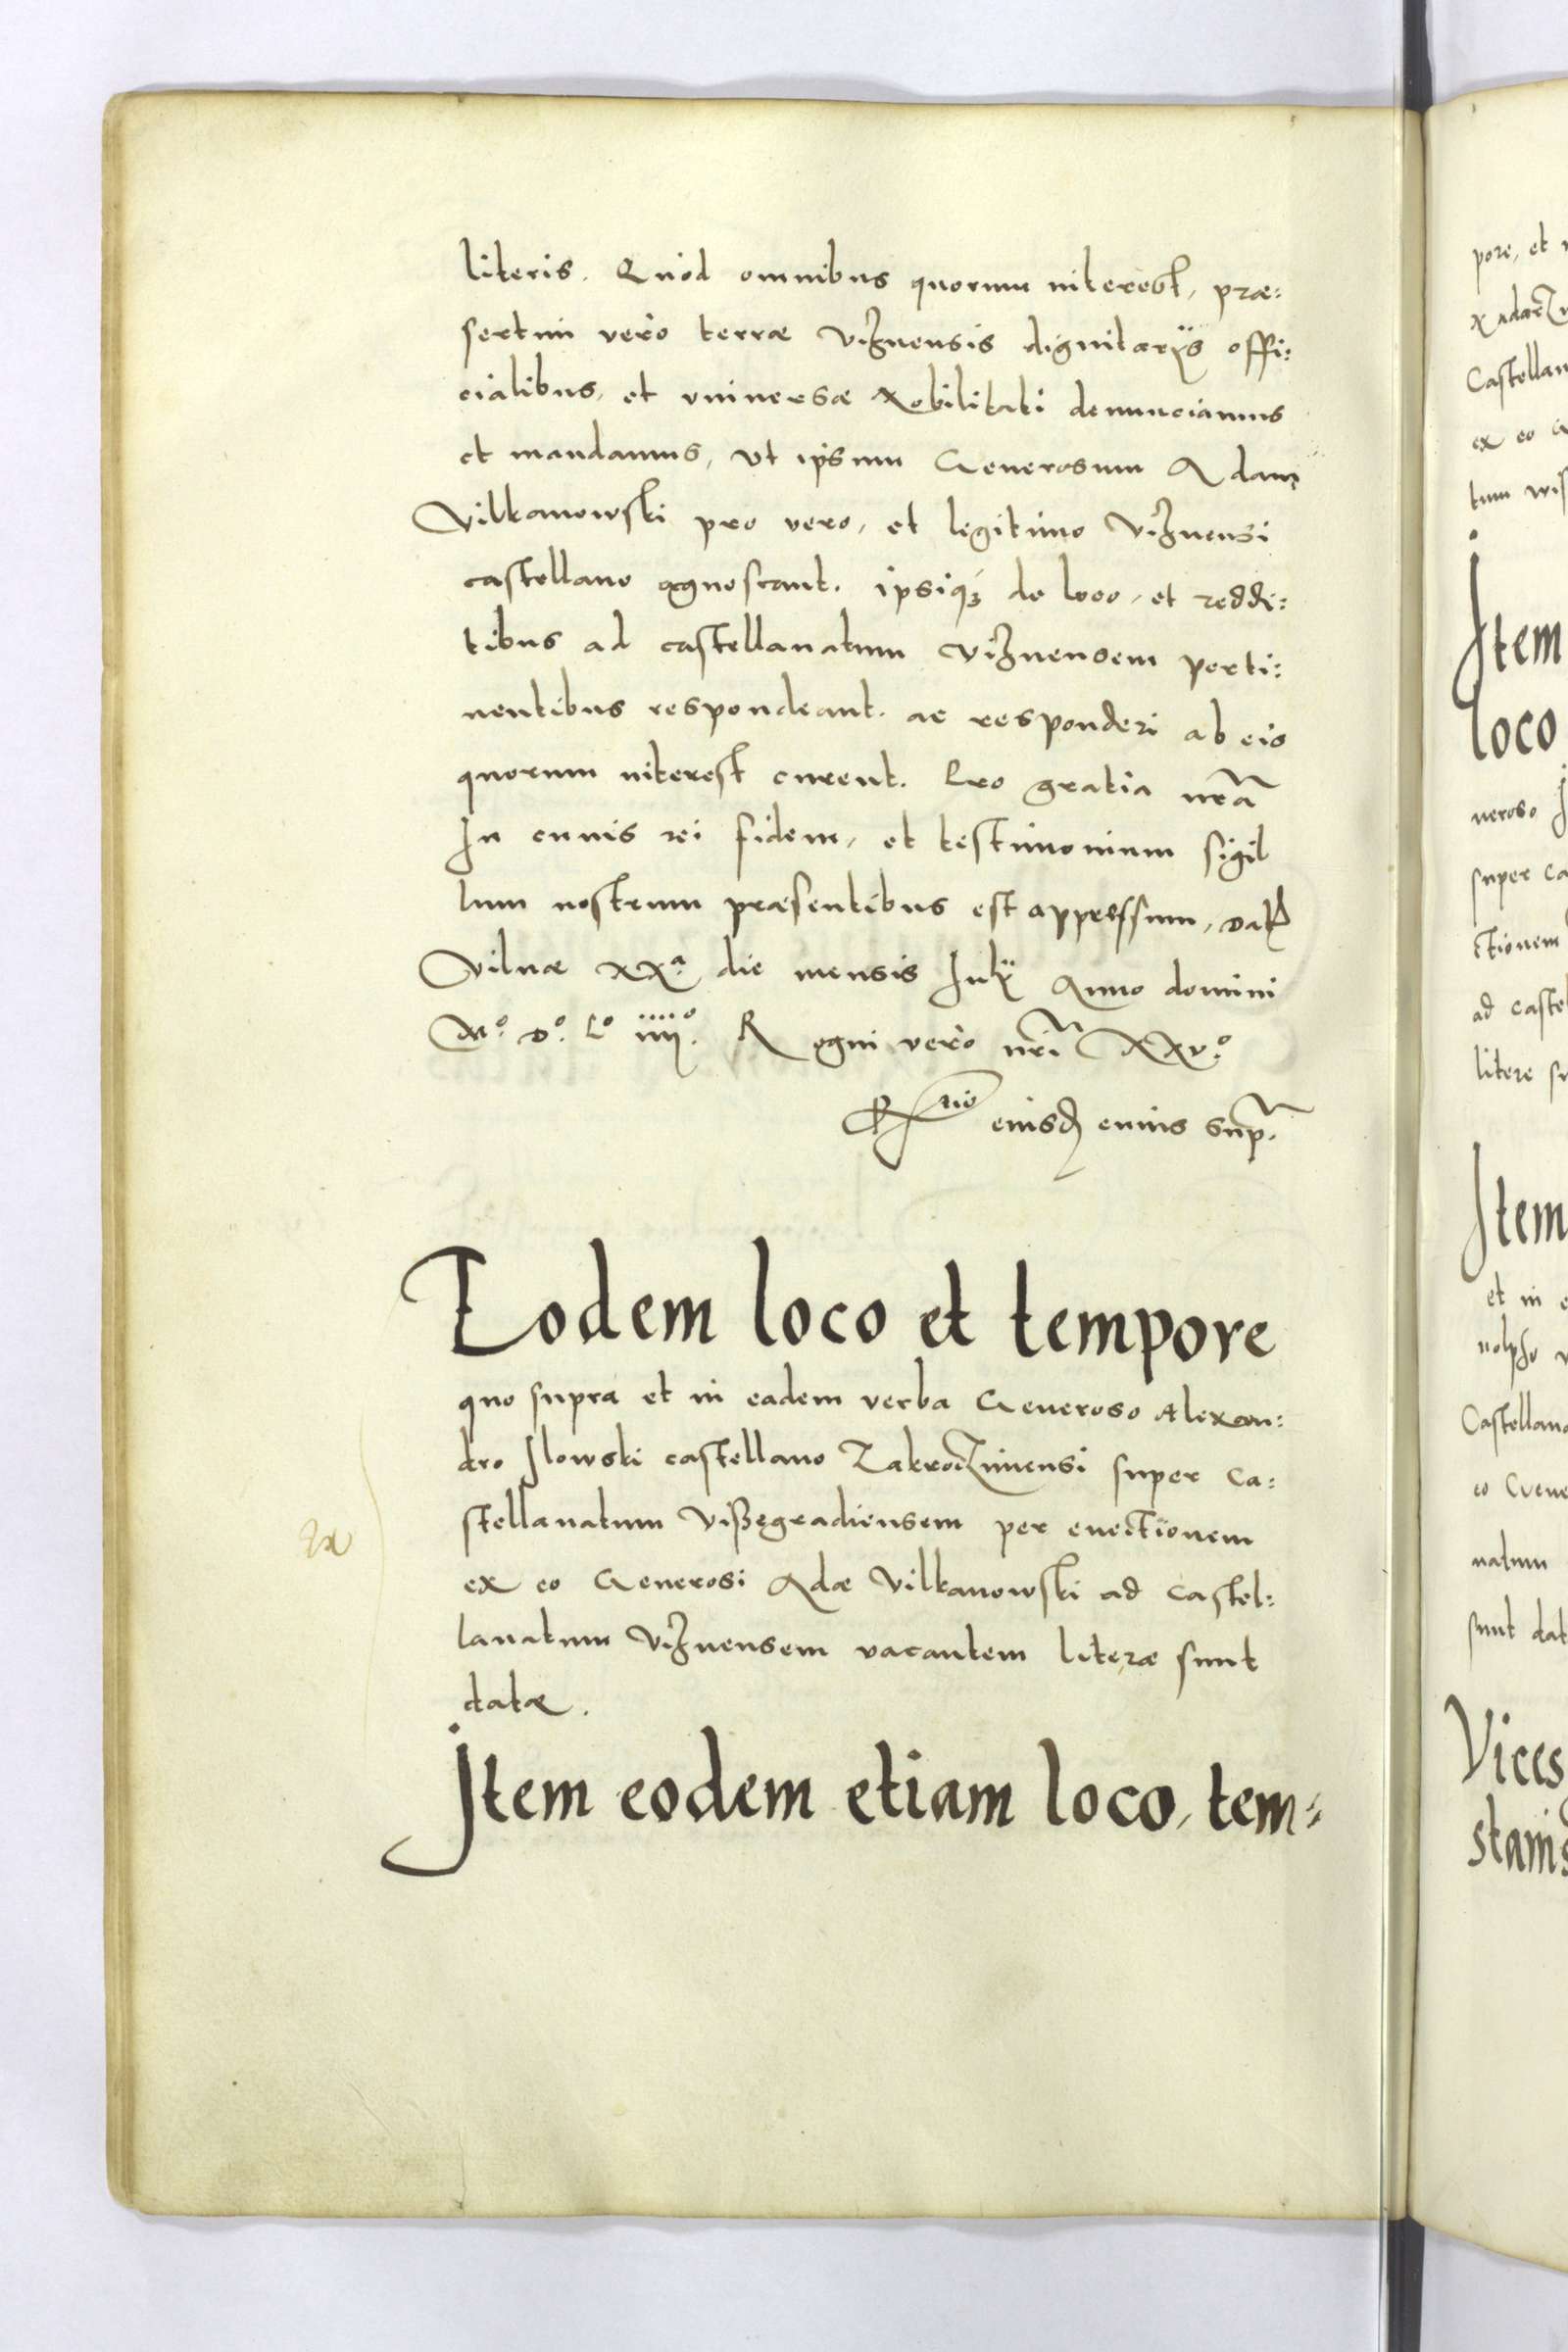 literis. Quòd omnibus quorum interest, præ:
sertim verò terræ Viznensis dignitarijs offi:
cialibus, et vniuersæ Nobilitati denunciamus
et mandamus, vt ipsum Generosum Adam
Vilkanowski pro vero, et legitimo Viznensi
castellano agnoscant. ipsiq; de loco, et reddi:
tibus ad castellanatum Viznensem perti:
nentibus respondeant. ac responderi ab eis
quorum interest curent. Pro gratia nrã
In cuius rei fidem, et testimonium sigil
lum nostrum præsentibus est appressum, Dat
Vilnæ XXa. die mensis Julij Anno domini
Mo. Do. Lo iiijo. Regni verò nri XXVo.
Rnio eiusd cuius supr.
Eodem loco et tempore
quo supra et in eadem verba Generoso Alexan:
dro Ilowski castellano Zakroczimensi super Ca:
stellanatum Vißegradiensem per euectionem
ex eo Generosi Adæ Vilkanowski ad Castel:
lanatum Viznensem vacantem literæ sunt
datæ.
Item eodem etiam loco, tem:
pore, et
Castellan
ex eo
tum
Item
loco
neroso
super Ca
ctionem
ad caste
litere
Item
et in
Castellano
eo Gene
natum
sunt dat
Vices
stanis